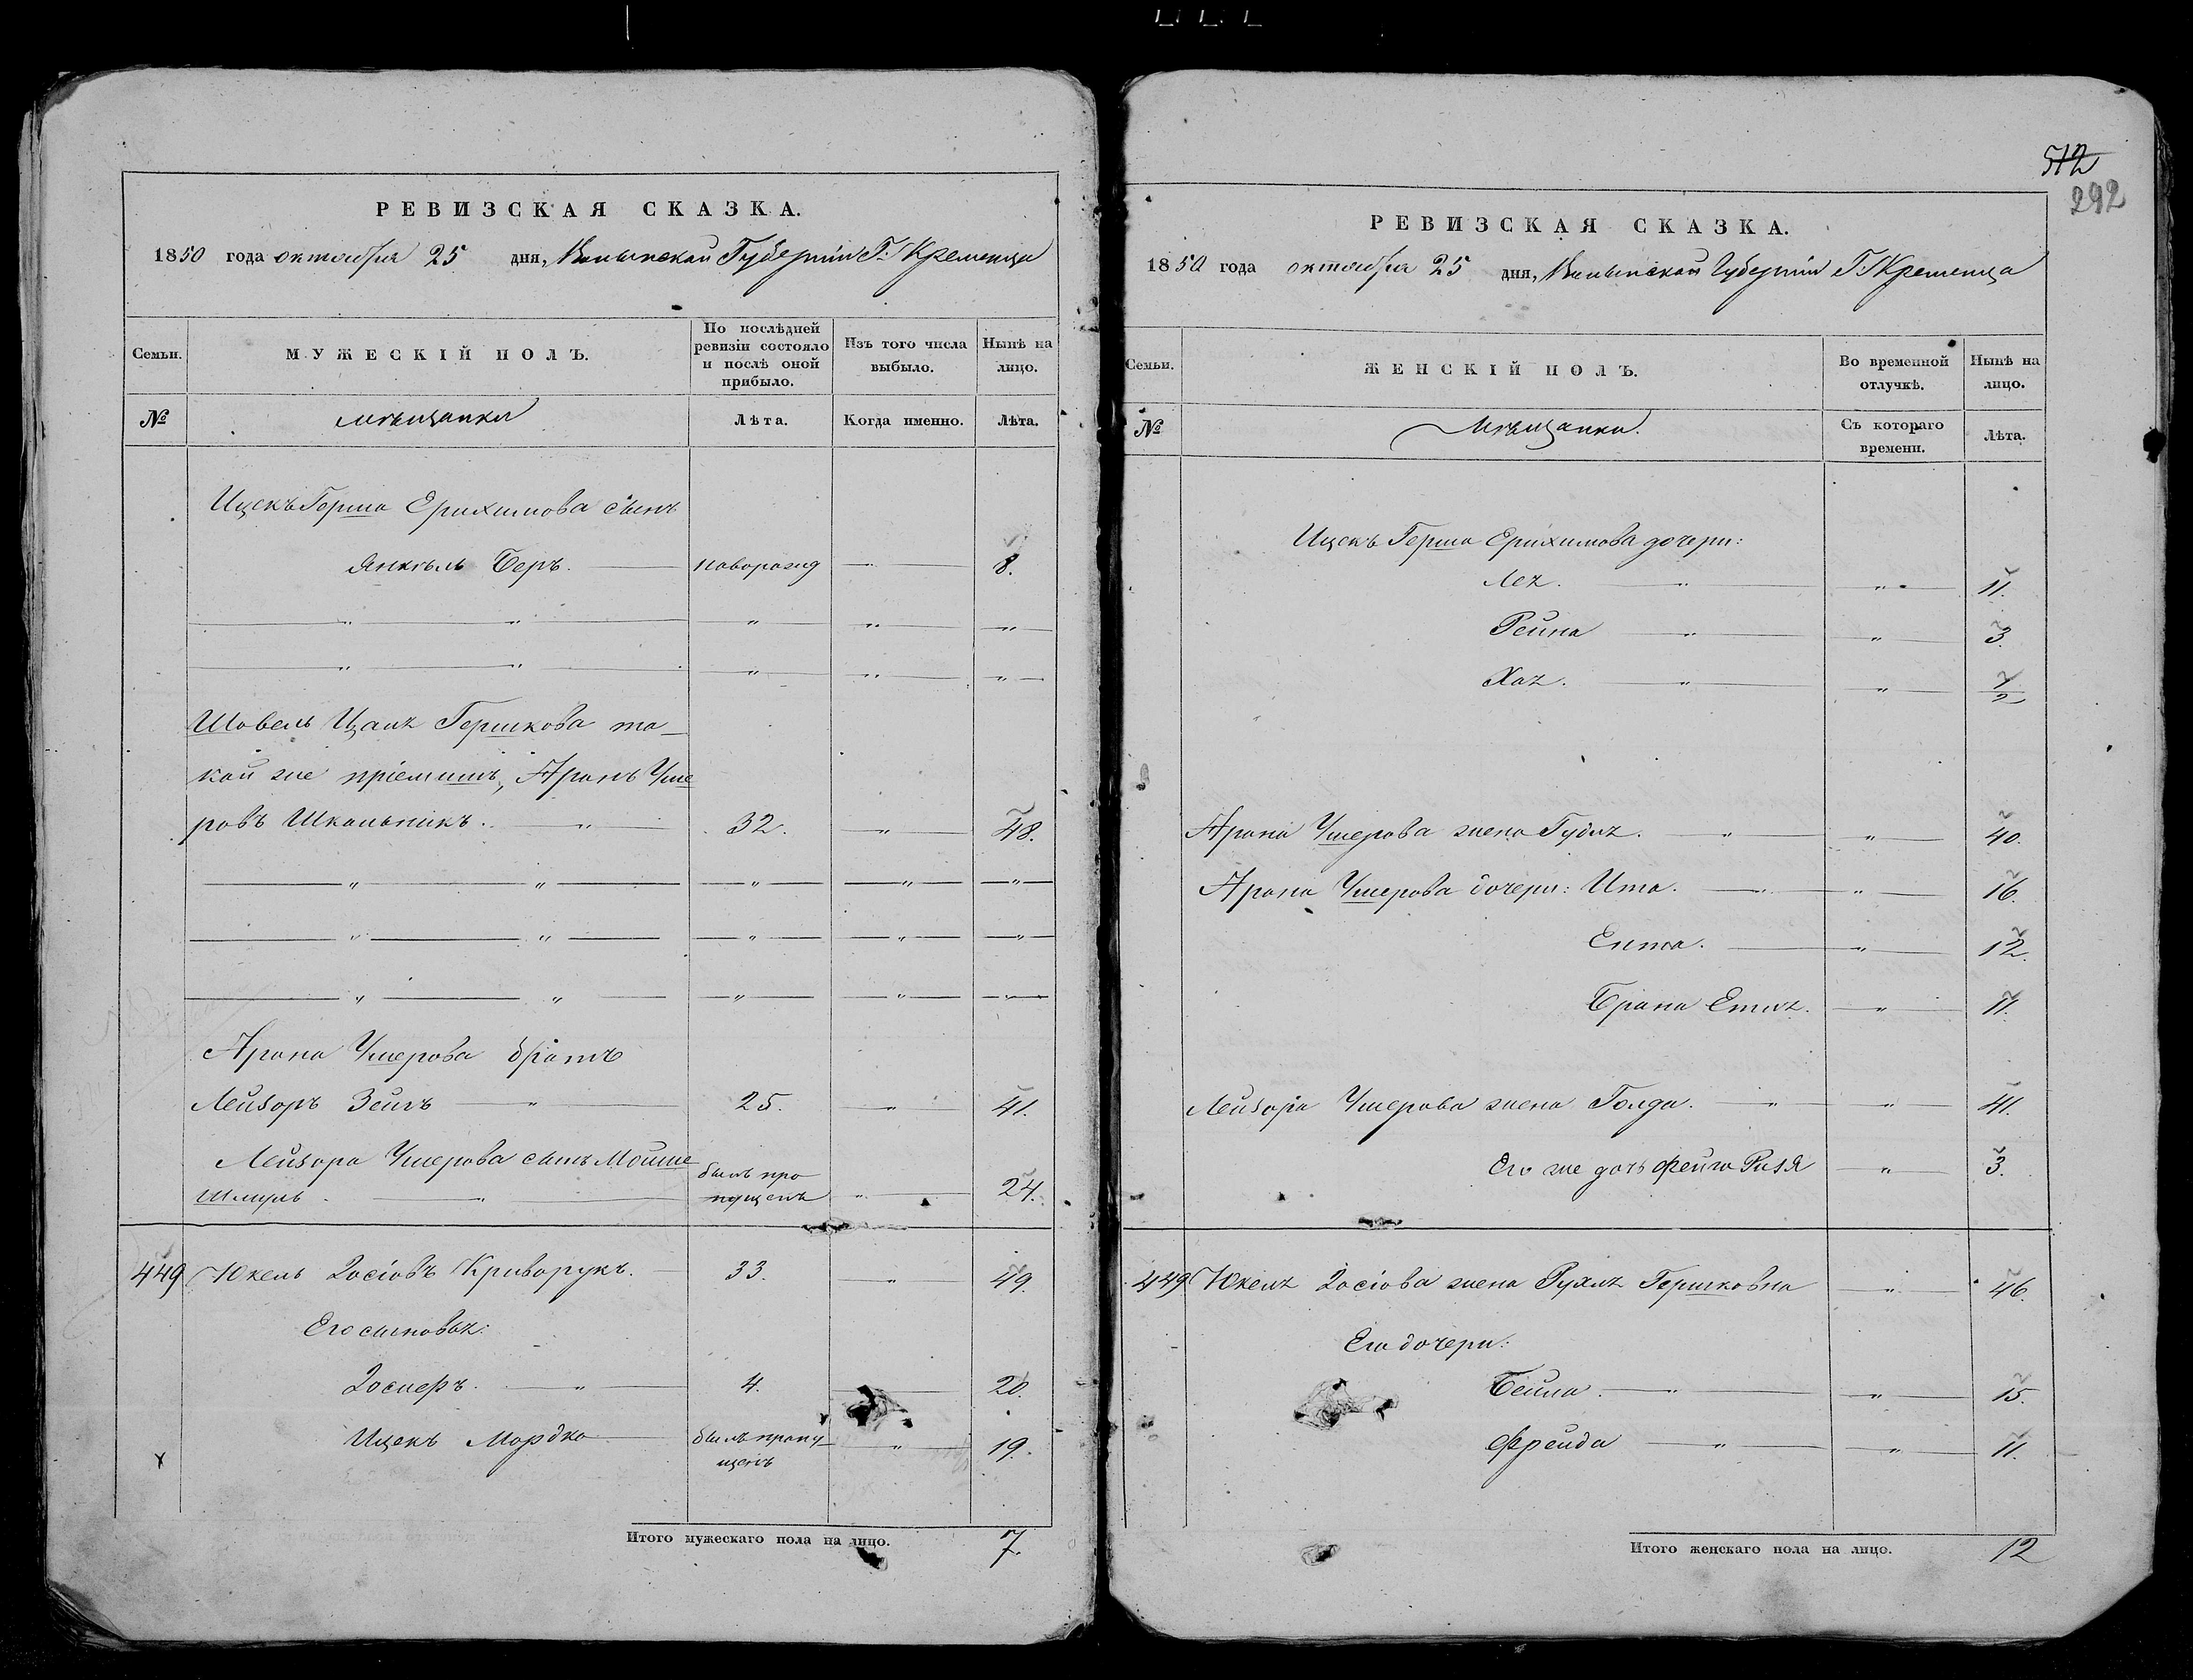 РЕВИЗСКАЯ СКАЗКА.
1850 года октября 25 дня, Волынской Губерніи Г. Кременца
Семьи.
МУЖЕСКІЙ ПОЛЪ.
По послѣдней ревизіи состояло и послѣ оной прибыло.
Изъ того числа выбыло.
Нынѣ на лицо.
№
мѣщане
Лѣта.
Когда именно.
Лѣта.
Ицекъ Герша Ерихимова сынъ
Янкель Беръ. новорожд 8.
Шовель Цаля Гершкова та-
кой же пріемишъ, Аронъ Уше
ровъ Школьникъ. 32. 48.
Арона Ушерова братъ
Лейзоръ Зейгъ 25. 41.
Лейзора Ушерова сынъ Мошше
Шмуль. былъ про пущенъ 24.
449 Юкель Іосіовъ Криворукъ. 33. 49.
Его сыновья:
Іосиеръ. 4. 20.
Ицекъ Мордко былъ пропу щенъ 19.
Итого мужескаго пола на лицо. 7.
512
292
РЕВИЗСКАЯ СКАЗКА.
1850 года октября 25 дня, Волынской Губерніи Г. Кременца
Семьи.
ЖЕНСКІЙ ПОЛЪ.
Во временной отлучкѣ.
Нынѣ на лицо.
№
Мѣщанки.
Съ котораго времени.
Лѣта.
Ицекъ Герша Ерихимова дочери:
Лея. 11.
Рейна 3.
Хая. 1/2
Арона Ушерова жена Гудля. 40.
Арона Ушерова дочери: Ита. 16.
Ента. 12.
Брана Етля. 11.
Лейзора Ушерова жена Голда. 41.
Его же дочь Фейга Ризя 3.
449 Юкеля Іосіова жена Рухля Гершковна 46.
Его дочери:
Бейла. 15.
Фрейда 11.
Итого женскаго пола на лицо. 12